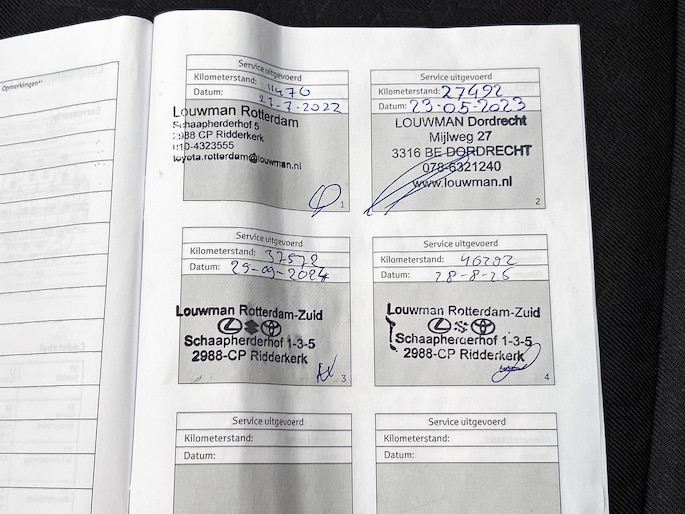 Opmerkingen
Service uitgevoerd
Kilometerstand: 11476
Datum: 21-7-2022
Louwman Rotterdam
Schaapherderhof 5
2988 CP Ridderkerk
010-4323555
toyota.rotterdam@louwman.nl
1
Service uitgevoerd
Kilometerstand: 27492
Datum: 23-05-2023
LOUWMAN Dordrecht
Mijlweg 27
3316 BE DORDRECHT
078-6321240
www.louwman.nl
2
Service uitgevoerd
Kilometerstand: 37572
Datum: 25-09-2024
Louwman Rotterdam-Zuid
Schaapherderhof 1-3-5
2988-CP Ridderkerk
3
Service uitgevoerd
Kilometerstand: 46292
Datum: 28-8-25
Louwman Rotterdam-Zuid
Schaapherderhof 1-3-5
2988-CP Ridderkerk
4
Service uitgevoerd
Kilometerstand:
Datum:
Service uitgevoerd
Kilometerstand:
Datum: